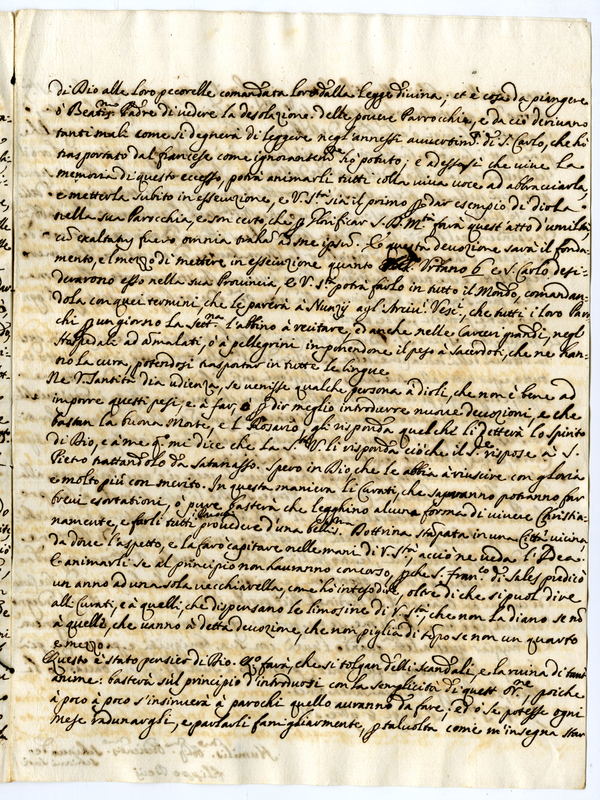 di Dio alle loro pecorelle comandata loro dalla legge divina; et è cosa da piangere
ò Beatis.mo Padre di vedere la desolazione delle povere Parrocchie, e da ciò derivano
tanti mali come si degnerà di leggere negl'annessi avvertim.ti di S. Carlo, che hò
trasportato dal francese come ignorantem.te hò potuto; e che vive la
memoria di questo eccesso, potrà animarli tutti colla viva voce ad abbracciarla
e metterla subito in essecuzione, e V. S.tà sia il primo p dar esempio di dirla
nella sua Parocchia, e son certo, che p glorificar S. D. M.tà farà quest'atto d'umiltà
exaltatus fuero omnia traham ad me ipsum. Questa devozione sarà il fonda-
mento, e'l mezzo di mettere in essecuzione quanto Urbano e S. Carlo desi-
derarono esso nella sua Provincia, e V. S.tà potrà farlo in tutto il Mondo, comandan-
dola con quei termini, che le parerà à Nunzij agl'Arciv.i Vesc.i, che tutti i loro Parro-
chi p un giorno la Sett.na l'abbino à recitare, ed anche nelle Carceri grandi, negl
Spedali ad amalati, ò à pellegrini imponendone il peso a Sacerdoti, che ne han-
no la cura, potendosi trasportar in tutte le lingue
Ne V. Santità dia udienza, se venisse qualche persona à dirli, che non è bene ad
imporre questi pesi, e à far, ò p dir meglio introdurre nuove devozioni, e che
bastan la buona Morte, e'l Rosario; gli risponda quel che li detterà lo Spirito
di Dio, e à me q.o mi dice che la S. V. li risponda ciò che il S.re rispose à S.
Pietro trattandolo da Satanasso. Spero in Dio, che le abbia à riuscire con gloria
e molto più con merito. In questa maniera li Curati, che sapranno potranno far
brevi esortationi, ò pure basterà che legghino alcuna forma di vivere Christia-
namente, e farli tutti provedere d'una Dottrina stampata in una Città vicina,
da dove l'aspetto, e la farò capitare nelle mani di V. S.tà, acciò ne veda l'Idea.
E animarli se al principio non hauranno concorso, p che S. Fran.co di Sales predicò
un anno ad una sola vecchiarella, come hò inteso dire, oltre di che si puol dire
alli Curati, e à quelli, che dispensano le limosine di V. S.tà, che non la diano se nò
à quelli, che vanno à detta devozione, che non piglia di tempo se non un quarto
e mezzo.
Questo è stato pensiero di Dio. farà, che si tolgan delli scandali, e la ruina di tant'
anime: basterà sul principio d'introdursi con la semplicità di quest' Or.ne, poiche
à poco à poco s'insinuerà à parochi quello auranno da fare; ed ò se potesse ogni
Mese radunargli, e parlarli famigliarmente, p talvolta come m'insegna